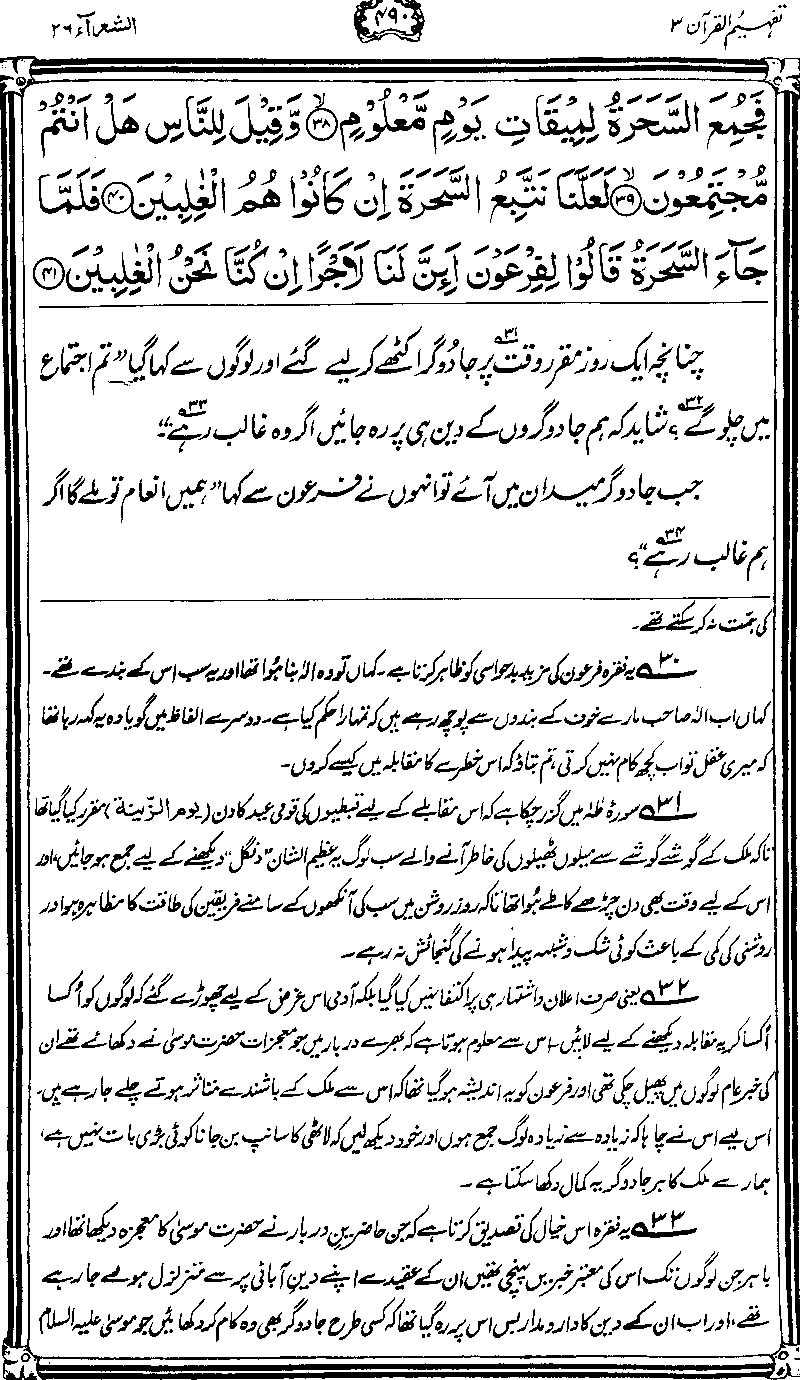 تفہیم القرآن ۳
۴۹۰
الشعرآء ۲۶
فَجُمِعَ السَّحَرَةُ لِمِيْقَاتِ يَوْمٍ مَّعْلُوْمٍ ۙ﴿۳۸﴾ وَّقِيْلَ لِلنَّاسِ هَلْ اَنْتُمْ
مُّجْتَمِعُوْنَ ۙ﴿۳۹﴾ لَعَلَّنَا نَتَّبِعُ السَّحَرَةَ اِنْ كَانُوْا هُمُ الْغٰلِبِيْنَ ﴿۴۰﴾ فَلَمَّا
جَآءَ السَّحَرَةُ قَالُوْا لِفِرْعَوْنَ اَئِنَّ لَنَا لَاَجْرًا اِنْ كُنَّا نَحْنُ الْغٰلِبِيْنَ ﴿۴۱﴾
چنانچہ ایک روز مقرر وقت۳۱ پر جادوگر اکٹھے کر لیے گئے اور لوگوں سے کہا گیا ”تم اجتماع
میں چلو گے۳۲؟ شاید کہ ہم جادوگروں کے دین ہی پر رہ جائیں اگر وہ غالب رہے۳۳“۔
جب جادوگر میدان میں آئے تو انہوں نے فرعون سے کہا ”ہمیں انعام تو ملے گا اگر
ہم غالب رہے۳۴“؟
کی ہمت نہ کر سکتے تھے۔
۳۰ یہ فقرہ فرعون کی مزید بدحواسی کو ظاہر کرتا ہے۔ کہاں تو وہ الٰہ بنا ہوا تھا اور یہ سب اس کے بندے تھے۔
کہاں اب الٰہ صاحب مارے خوف کے بندوں سے پوچھ رہے ہیں کہ تمہارا حکم کیا ہے۔ دوسرے الفاظ میں گویا وہ یہ کہہ رہا تھا
کہ میری عقل تو اب کچھ کام نہیں کرتی، تم بتاؤ کہ اس خطرے کا مقابلہ میں کیسے کروں۔
۳۱ سورۂ طٰہٰ میں گزر چکا ہے کہ اس مقابلے کے لیے قبطیوں کی قومی عید کا دن (یوم الزّینة) مقرر کیا گیا تھا
تاکہ ملک کے گوشے گوشے سے میلوں ٹھیلوں کی خاطر آنے والے سب لوگ یہ عظیم الشان ”دنگل“ دیکھنے کے لیے جمع ہو جائیں، اور
اس کے لیے وقت بھی دن چڑھے کا طے ہوا تھا تاکہ روز روشن میں سب کی آنکھوں کے سامنے فریقین کی طاقت کا مظاہرہ ہو اور
روشنی کی کمی کے باعث کوئی شک و شبہ پیدا ہونے کی گنجائش نہ رہے۔
۳۲ یعنی صرف اعلان و اشتہار ہی پر اکتفا نہیں کیا گیا بلکہ آدمی اس غرض کے لیے چھوڑے گئے کہ لوگوں کو اُکسا
اُکسا کر یہ مقابلہ دیکھنے کے لیے لائیں۔ اس سے معلوم ہوتا ہے کہ بھرے دربار میں جو معجزات حضرت موسیٰ نے دکھائے تھے ان
کی خبر عام لوگوں میں پھیل چکی تھی اور فرعون کو یہ اندیشہ ہو گیا تھا کہ اس سے ملک کے باشندے متاثر ہوتے چلے جا رہے ہیں۔
اس لیے اس نے چاہا کہ زیادہ سے زیادہ لوگ جمع ہوں اور خود دیکھ لیں کہ لاٹھی کا سانپ بن جانا کوئی بڑی بات نہیں ہے،
ہمارے ملک کا ہر جادوگر یہ کمال دکھا سکتا ہے۔
۳۳ یہ فقرہ اس خیال کی تصدیق کرتا ہے کہ جن حاضرین دربار نے حضرت موسیٰ کا معجزہ دیکھا تھا اور
باہر جن لوگوں تک اس کی معتبر خبریں پہنچی تھیں ان کے عقیدے اپنے دین آبائی پر سے متزلزل ہوئے جا رہے
تھے، اور اب ان کے دین کا دار و مدار بس اس پر رہ گیا تھا کہ کسی طرح جادوگر بھی وہ کام کر دکھائیں جو موسیٰ علیہ السلام